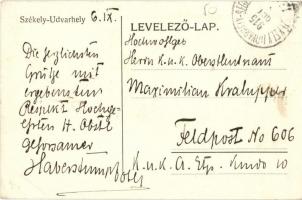 Székely-Udvarhely
6. IX.
LEVELEZŐ-LAP.
Die herzlichsten
Grüße mit
ergebenstem
Respekt Hochge-
ehrten H. Obstl
gehorsamer
Haberstumpf
Hochwohlges
Herrn K.u.K. Oberstleutnant
Maximilian Kralupper
Feldpost No 606
K.u.K. Etp. Kmdo 10